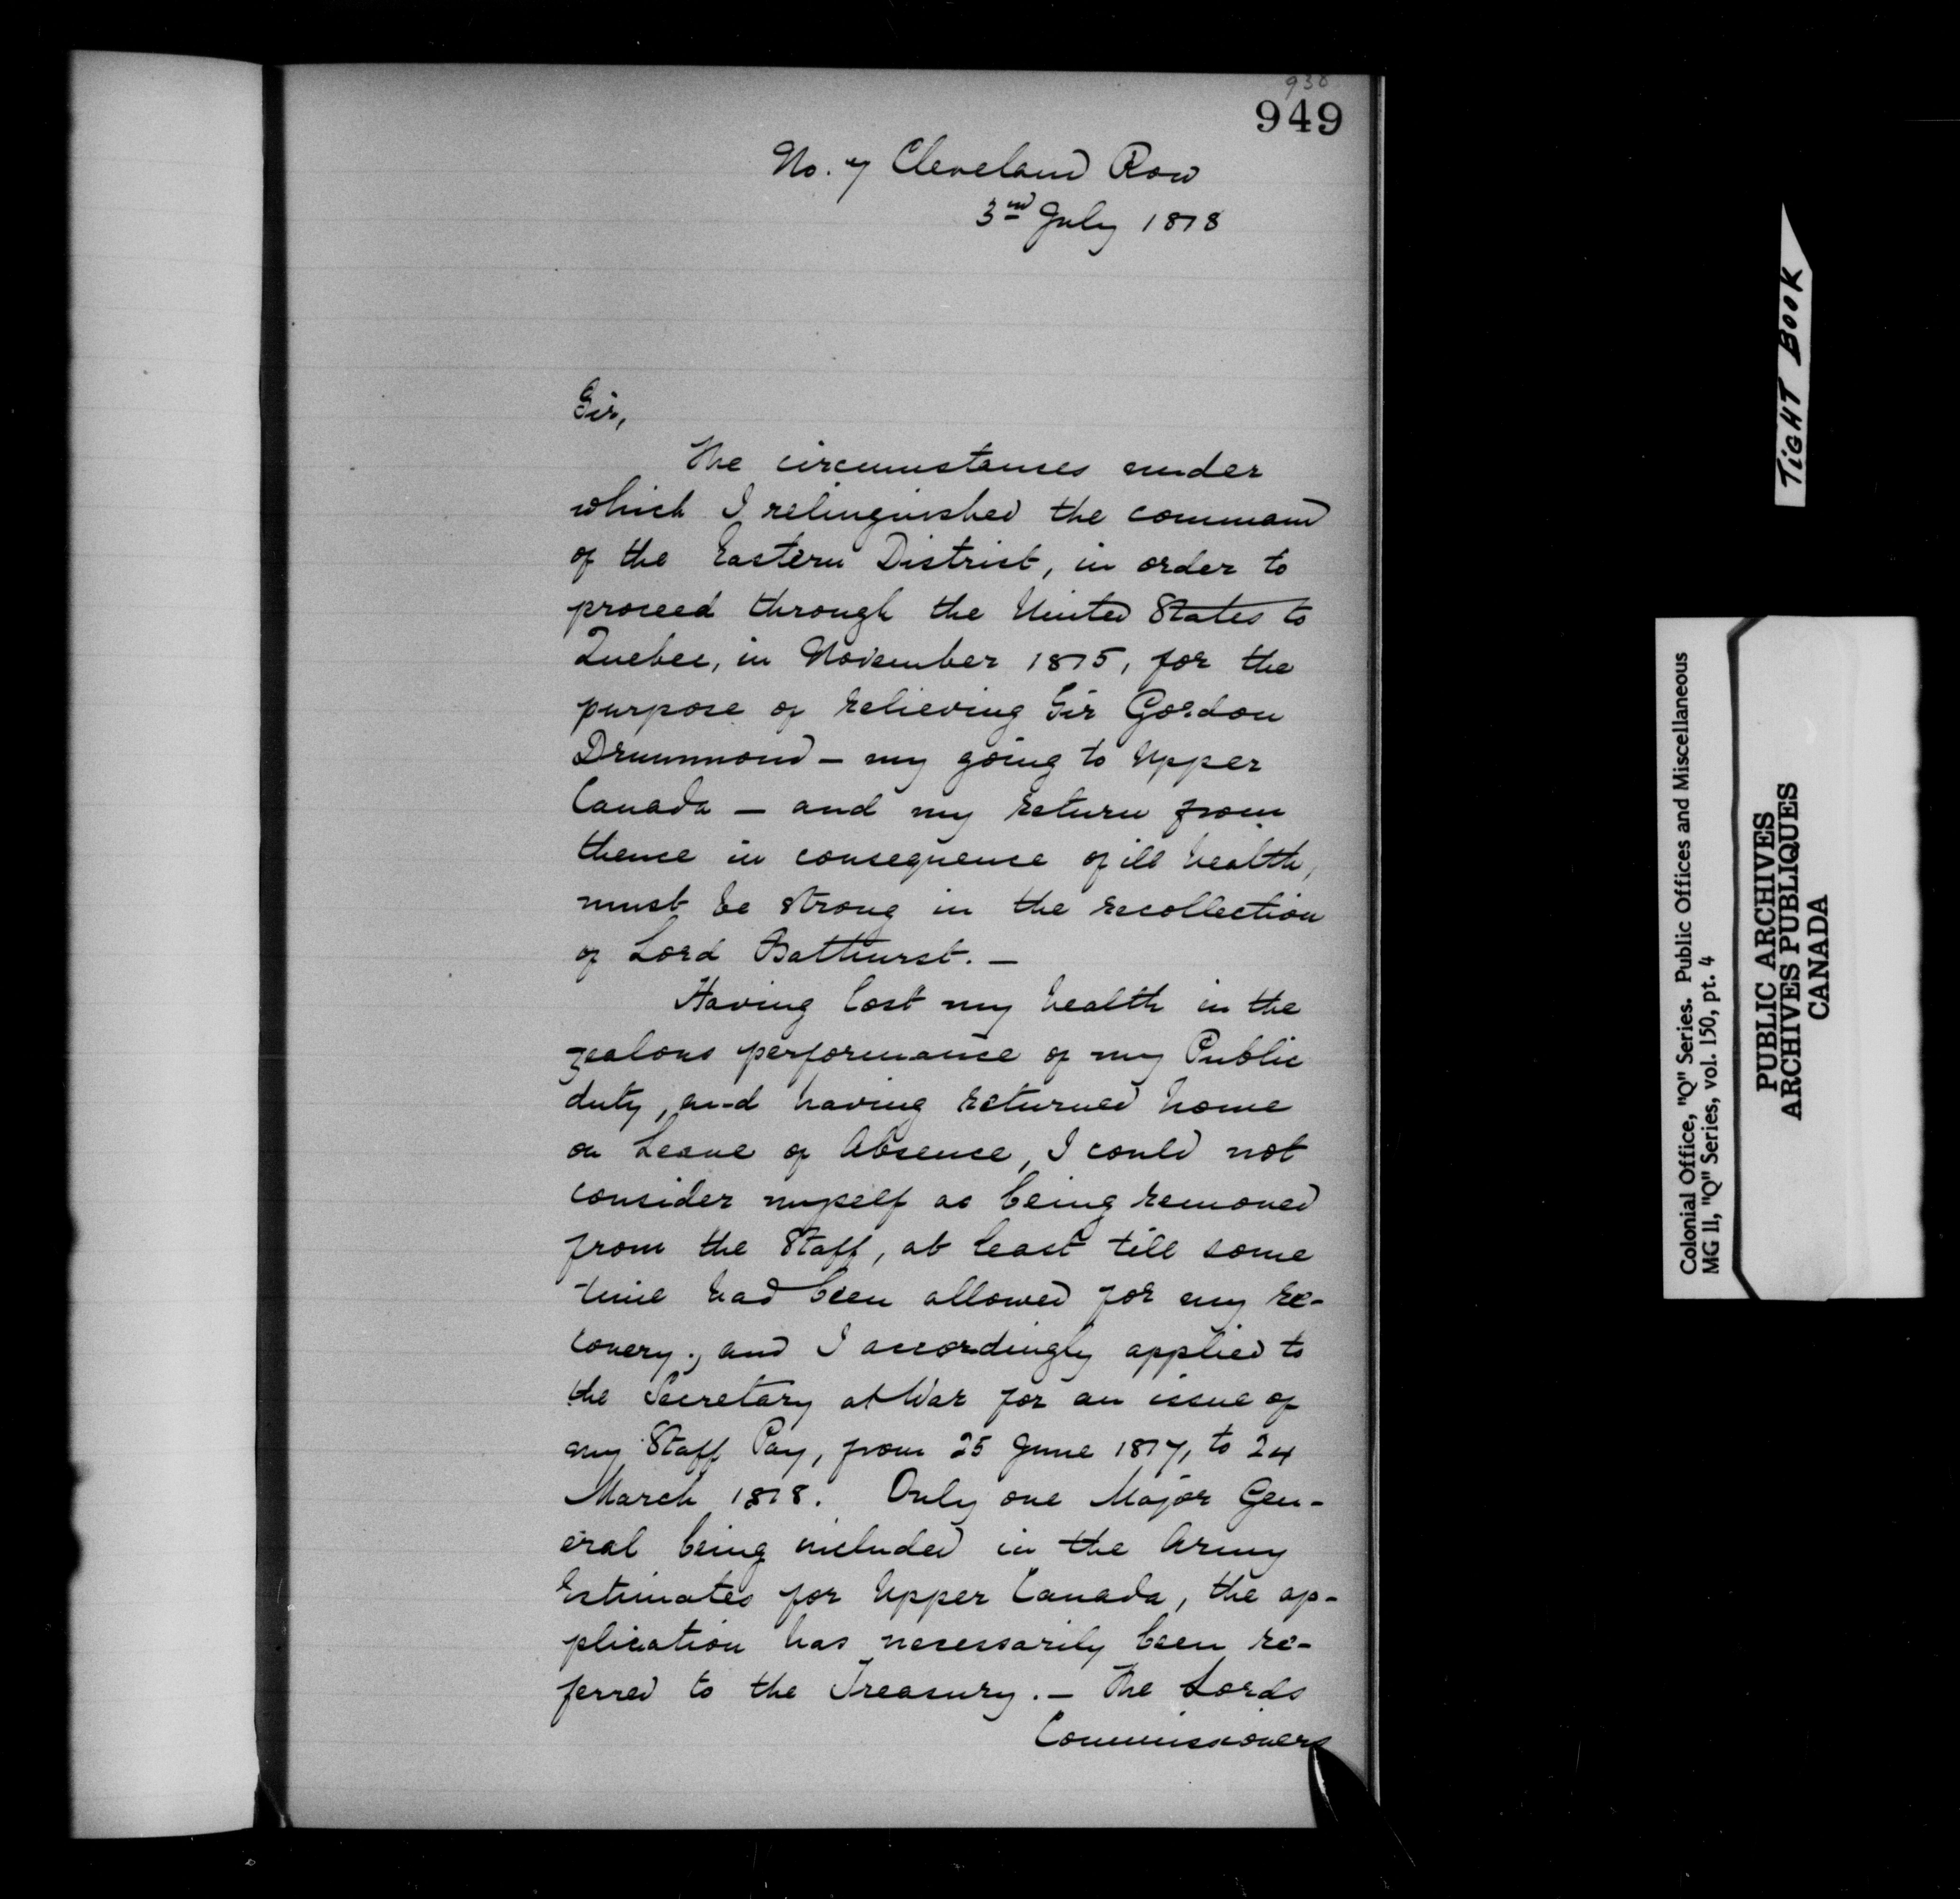 930
949
No. 7 Cleveland Row
3rd July 1818
Sir,
The circumstances under
which I relinquished the command
of the Eastern District, in order to
proceed through the United States to
Quebec, in November 1815, for the
purpose of relieving Sir Gordon
Drummond — my going to Upper
Canada — and my return from
thence in consequence of ill health,
must be strong in the recollection
of Lord Bathurst. —
Having lost my health in the
zealous performance of my Public
duty, and having returned home
on Leave of Absence, I could not
consider myself as being removed
from the Staff, at least till some
time had been allowed for my re-
covery; and I accordingly applied to
the Secretary at War for an issue of
my Staff Pay, from 25 June 1817, to 24
March 1818. Only one Major Gen-
eral being included in the Army
Estimates for Upper Canada, the ap-
plication has necessarily been re-
ferred to the Treasury. — The Lords
Commissioners
TIGHT BOOK
Colonial Office, "Q" Series. Public Offices and Miscellaneous
MG 11, "Q" Series, vol. 150, pt. 4
PUBLIC ARCHIVES
ARCHIVES PUBLIQUES
CANADA